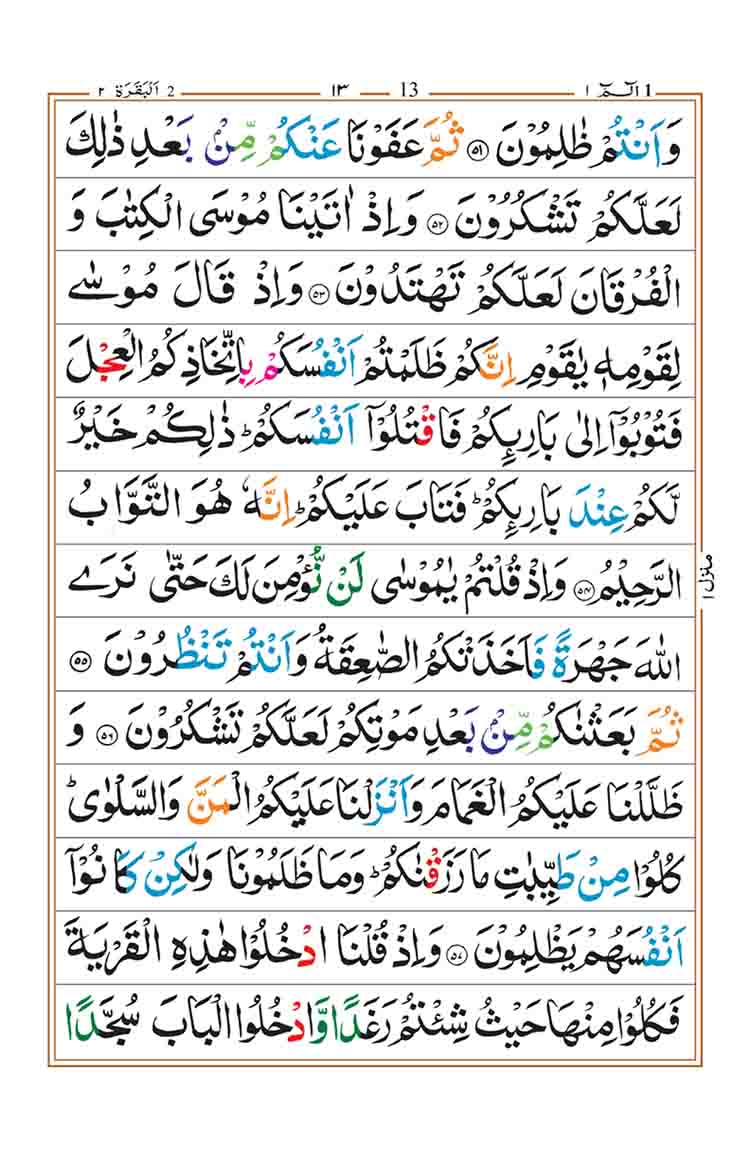 1 الٓمّٓ ۱ — 13 — ۱۳ — 2 اَلْبَقَرَة ۲
وَاَنْتُمْ ظٰلِمُوْنَ ۝۵۱ ثُمَّ عَفَوْنَا عَنْكُمْ مِّنْۢ بَعْدِ ذٰلِكَ
لَعَلَّكُمْ تَشْكُرُوْنَ ۝۵۲ وَاِذْ اٰتَيْنَا مُوْسَى الْكِتٰبَ وَ
الْفُرْقَانَ لَعَلَّكُمْ تَهْتَدُوْنَ ۝۵۳ وَاِذْ قَالَ مُوْسٰے
لِقَوْمِهٖ يٰقَوْمِ اِنَّكُمْ ظَلَمْتُمْ اَنْفُسَكُمْ بِاتِّخَاذِكُمُ الْعِجْلَ
فَتُوْبُوْٓا اِلٰى بَارِىِٕكُمْ فَاقْتُلُوْٓا اَنْفُسَكُمْ ؕ ذٰلِكُمْ خَيْرٌ
لَّكُمْ عِنْدَ بَارِىِٕكُمْ ؕ فَتَابَ عَلَيْكُمْ ؕ اِنَّهٗ هُوَ التَّوَّابُ
الرَّحِيْمُ ۝۵۴ وَاِذْ قُلْتُمْ يٰمُوْسٰى لَنْ نُّؤْمِنَ لَكَ حَتّٰى نَرَے
اللّٰهَ جَهْرَةً فَاَخَذَتْكُمُ الصّٰعِقَةُ وَاَنْتُمْ تَنْظُرُوْنَ ۝۵۵
ثُمَّ بَعَثْنٰكُمْ مِّنْۢ بَعْدِ مَوْتِكُمْ لَعَلَّكُمْ تَشْكُرُوْنَ ۝۵۶ وَ
ظَلَّلْنَا عَلَيْكُمُ الْغَمَامَ وَاَنْزَلْنَا عَلَيْكُمُ الْمَنَّ وَالسَّلْوٰى ؕ
كُلُوْا مِنْ طَيِّبٰتِ مَا رَزَقْنٰكُمْ ؕ وَمَا ظَلَمُوْنَا وَلٰكِنْ كَانُوْٓا
اَنْفُسَهُمْ يَظْلِمُوْنَ ۝۵۷ وَاِذْ قُلْنَا ادْخُلُوْا هٰذِهِ الْقَرْيَةَ
فَكُلُوْا مِنْهَا حَيْثُ شِئْتُمْ رَغَدًا وَّادْخُلُوا الْبَابَ سُجَّدًا
منزل ۱